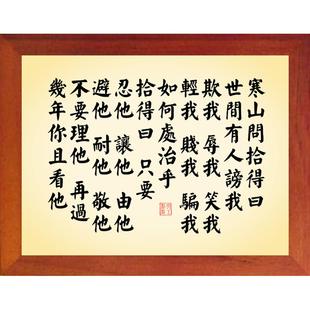 寒山問拾得曰
世間有人謗我
欺我 辱我 笑我
輕我 賤我 騙我
如何處治乎
拾得曰 只要
忍他 讓他 由他
避他 耐他 敬他
不要理他 再過
幾年你且看他